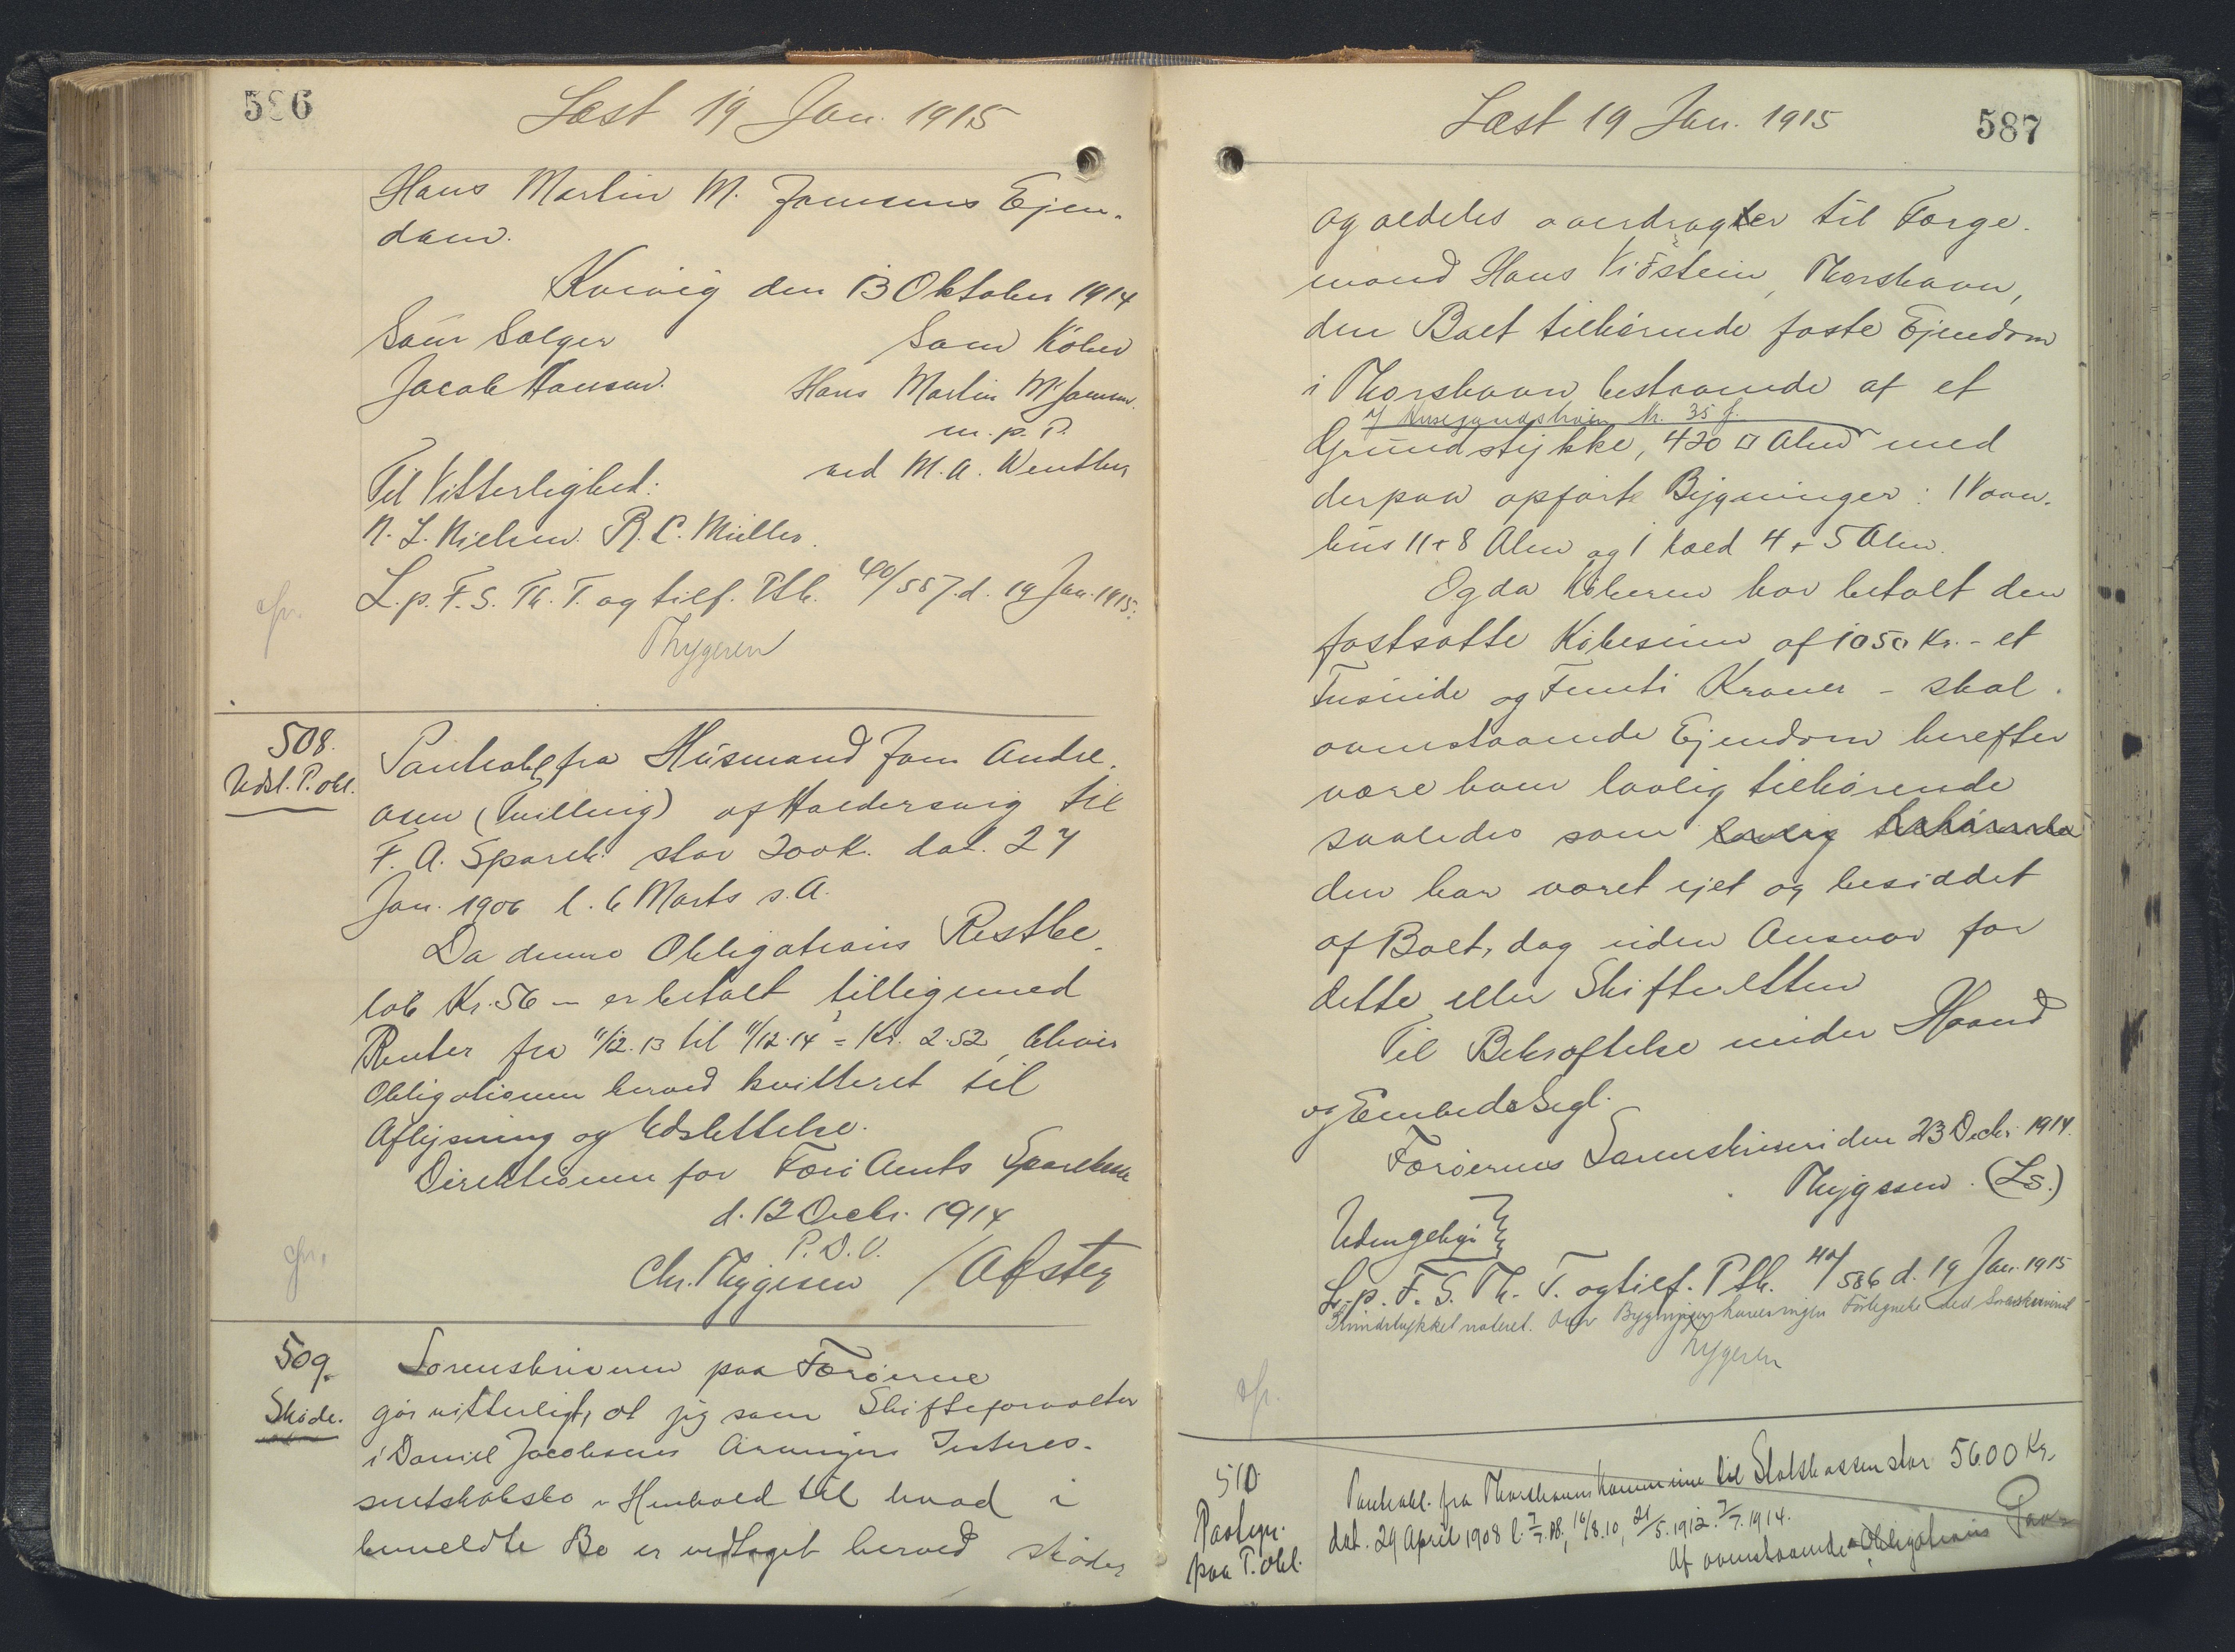 586
Læst 19 Jan. 1915
Hans Martin M. Joensens Ejen-
dom.
Kvivig den 13 Oktober 1914
Som Sælger
Som Køber
Jacob Hansen.
Hans Martin M. Joensen.
m. p. P.
ved M. A. Wenther
Til Vitterlighed:
N. J. Nielsen. R. C. Müller.
L. p. F. S. Th. T. og tilf. Ptb. 40/557. d. 19 Jan. 1915.
Thygesen
508.
Udsl. P. obl.
Pantobl. fra Husmand Joen Andre-
asen (Tvilling) af Haldersvig til
F. A. Sparek. stor 200 K. dat. 27
Jan. 1906 l. 6 Marts s. A.
Da denne Obligations Restbe-
løb Kr. 56 – er betalt, tilligemed
Renter fra 11/12.13 til 11/12.14 = Kr. 2.52, bliver
Obligationen herved kvitteret til
Aflysning og Udslettelse.
Direktionen for Færø Amts Sparekasse
d. 12 Decbr. 1914
P. D. V.
Chr. Thygesen / A Østeg
509.
Skøde.
Sorenskriveren paa Færøerne
gør vitterligt, at jeg som Skifteforvalter
i Daniel Jacobsens Arvingers Interes-
sentskabsbo i Henhold til hvad i
bemeldte Bo er vedtaget herved skøder
587
Læst 19 Jan. 1915
og aldeles overdrager til Farge-
mand Hans Viðstein, Thorshavn,
den Boet tilhørende faste Ejendom
i Thorshavn, bestaaende af et
af Husegrundshøien Nr. 35 f.
Grundstykke, 420 □ Alen med
derpaa opførte Bygninger: 1 Vaan-
hus 11 + 8 Alen og 1 Hoed 4 + 5 Alen.
Og da Køberen har betalt den
fastsatte Købesum af 1050 Kr. – et
Tusinde og Femti Kroner – skal
ovenstaaende Ejendom herefter
være ham lovlig tilhørende
saaledes som lovlig tilhørende
den har været ejet og besiddet
af Boet, dog uden Ansvar for
dette eller Skifteretten
Til Bekræftelse under Haand
og Embedssegl.
Færøernes Sorenskriveri den 23 Decbr. 1914.
Thygesen. (L.S.)
Uden gebyr
L. p. F. S. Th. T. og tilf. Ptb. 40/586 d. 19 Jan. 1915
Grundstykket noteret. Over Bygningerne haves ingen Fortegnelse ved Sorenskriveriet
Thygesen
510
Paategn.
paa P. obl.
Pantobl. fra Thorshavns Kommune til Statskassen stor 5600 Kr.
dat. 29 April 1908 l. 7/7.08, 16/8.10, 21/5.1912. 7/7.1914.
Af ovenstaaende Obligations